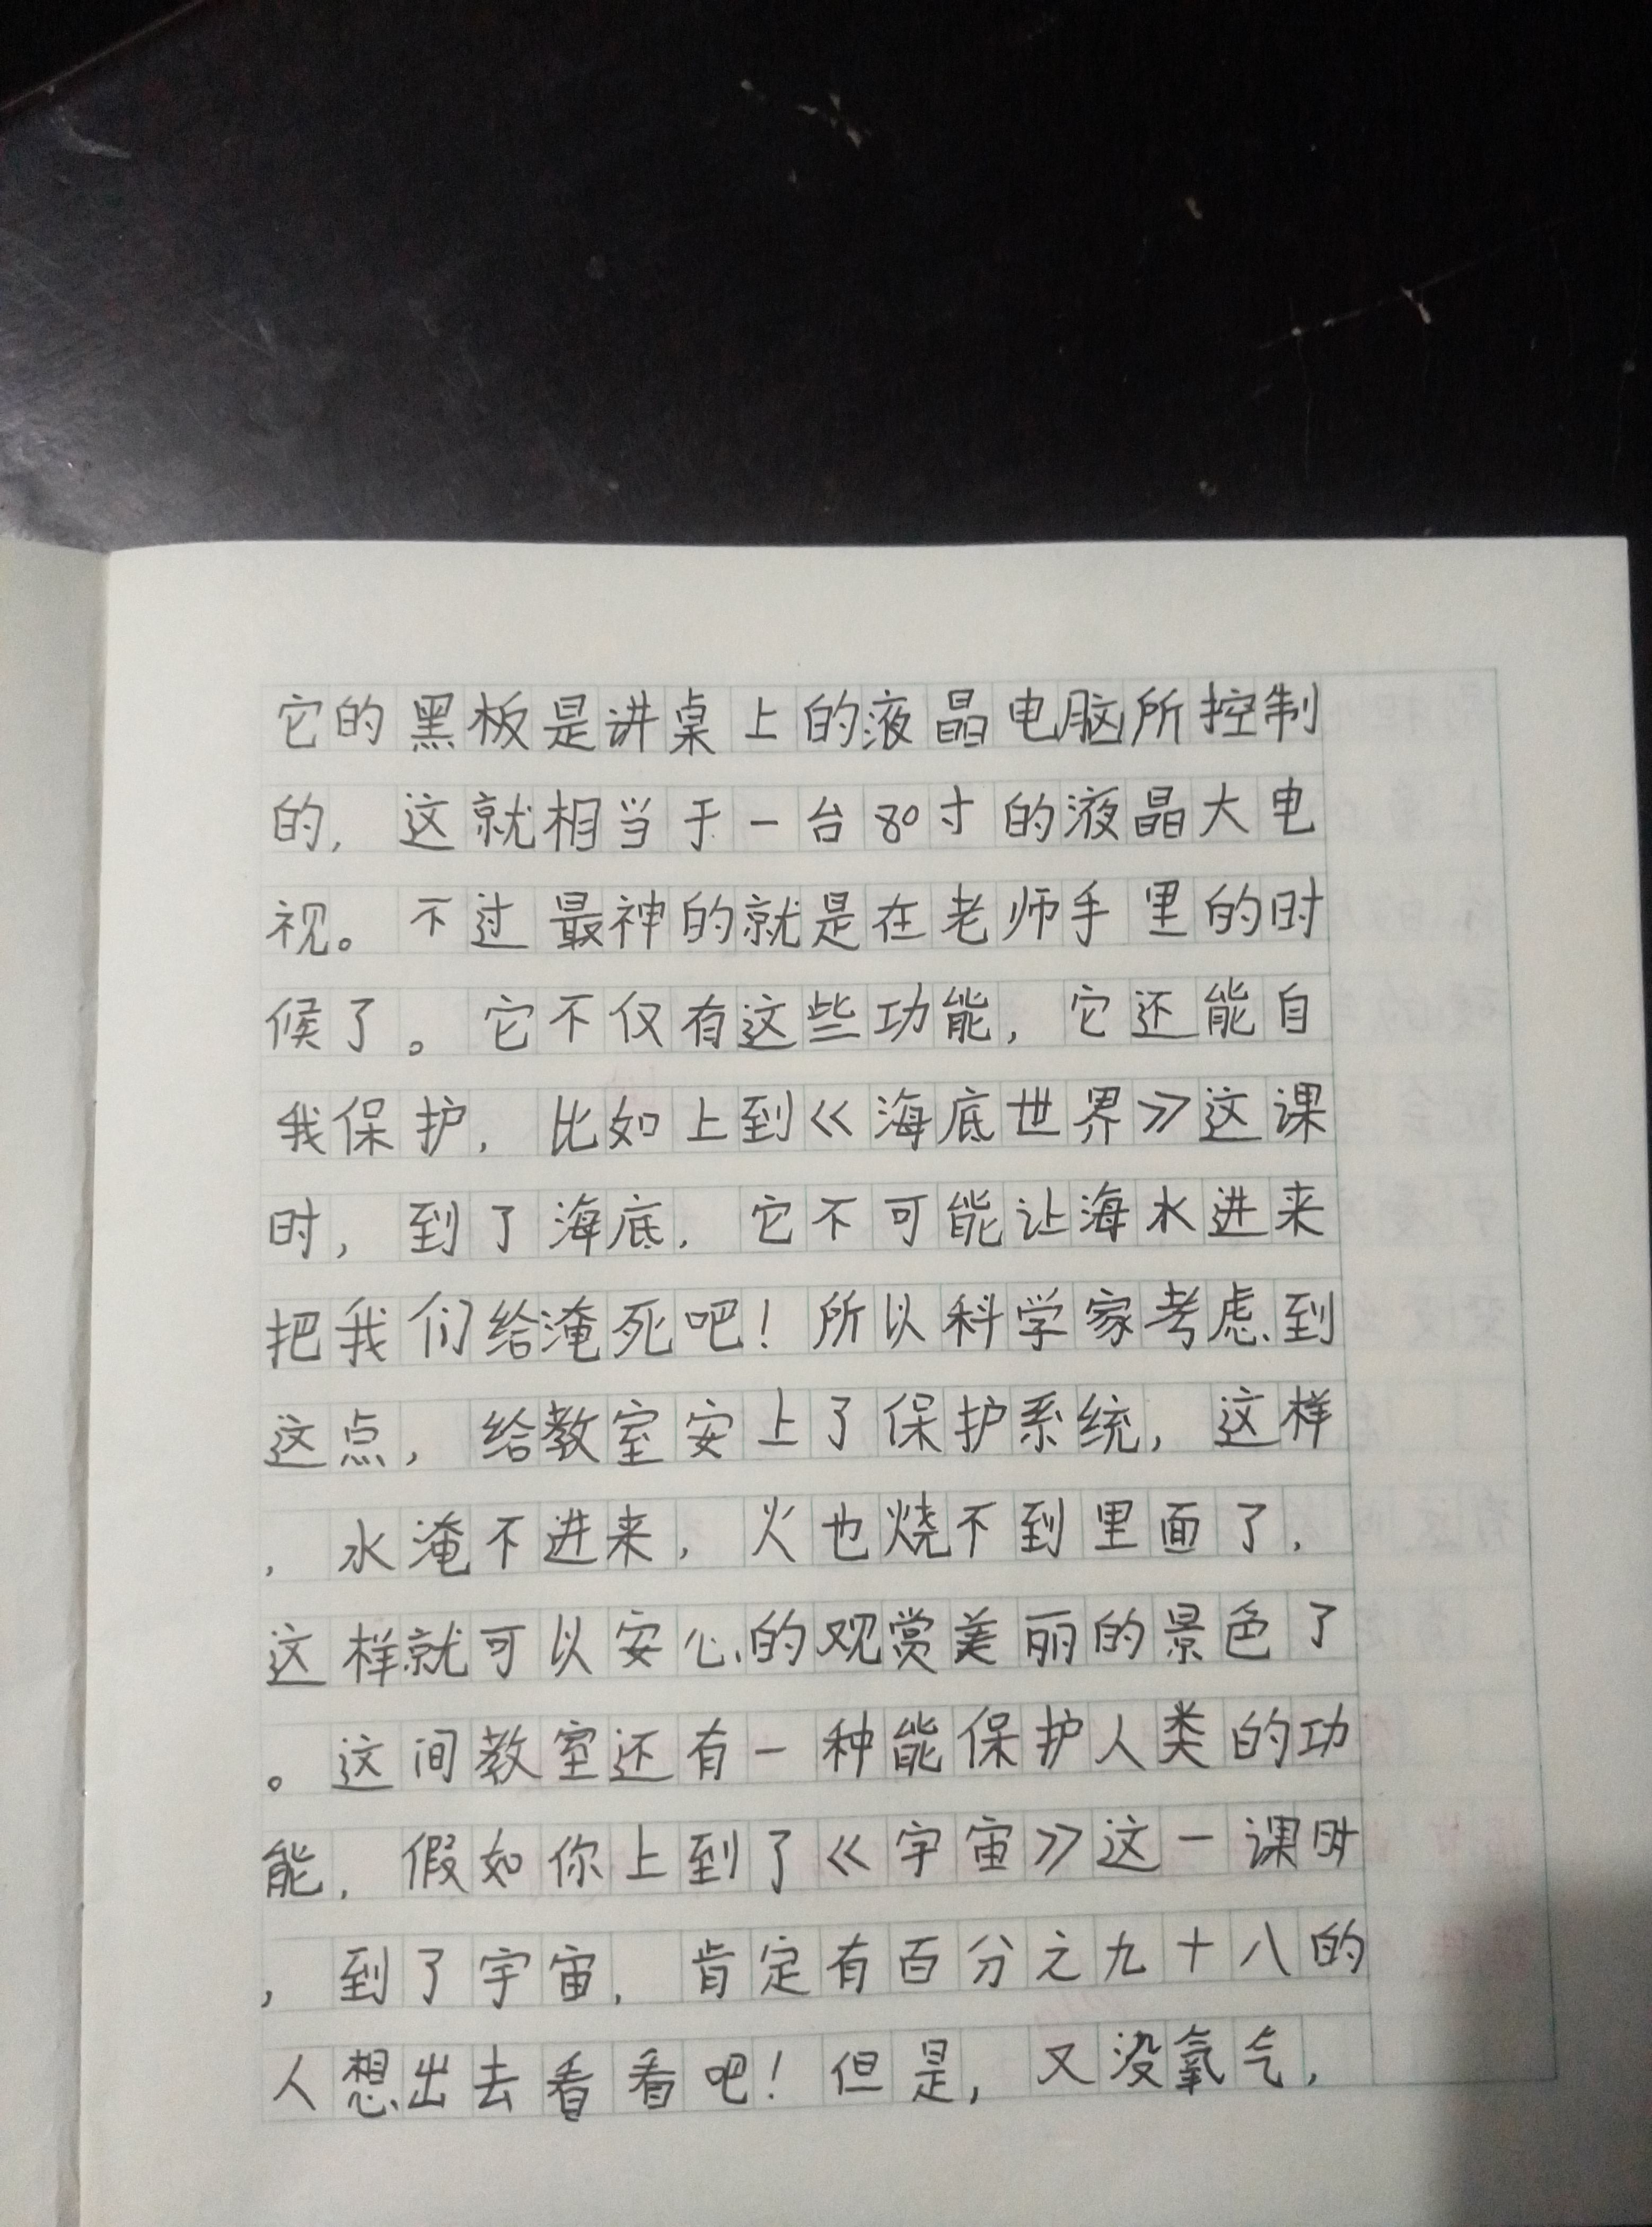 它的黑板是讲桌上的液晶电脑所控制
的，这就相当于一台80寸的液晶大电
视。不过最神的就是在老师手里的时
候了。它不仅有这些功能，它还能自
我保护，比如上到《海底世界》这课
时，到了海底，它不可能让海水进来
把我们给淹死吧！所以科学家考虑到
这点，给教室安上了保护系统，这样
，水淹不进来，火也烧不到里面了，
这样就可以安心的观赏美丽的景色了
。这间教室还有一种能保护人类的功
能，假如你上到了《宇宙》这一课时
，到了宇宙，肯定有百分之九十八的
人想出去看看吧！但是，又没氧气，